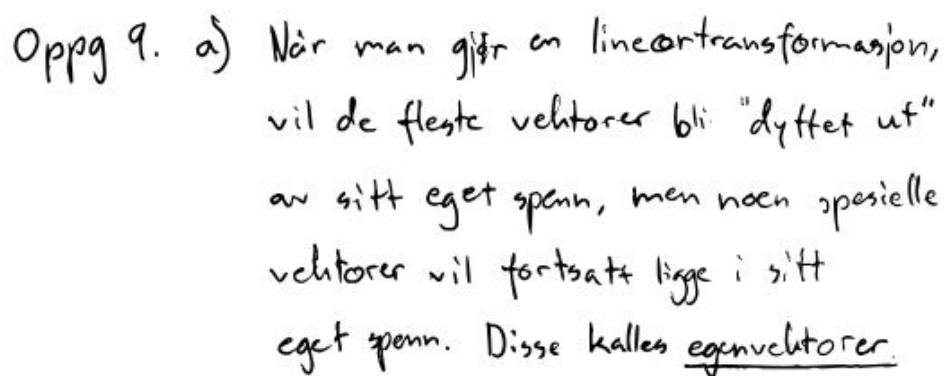 Oppg 9. a) Når man gjør en lineærtransformasjon,
vil de fleste vektorer bli "dyttet ut"
av sitt eget spenn, men noen spesielle
vektorer vil fortsatt ligge i sitt
eget spenn. Disse kalles egenvektorer.